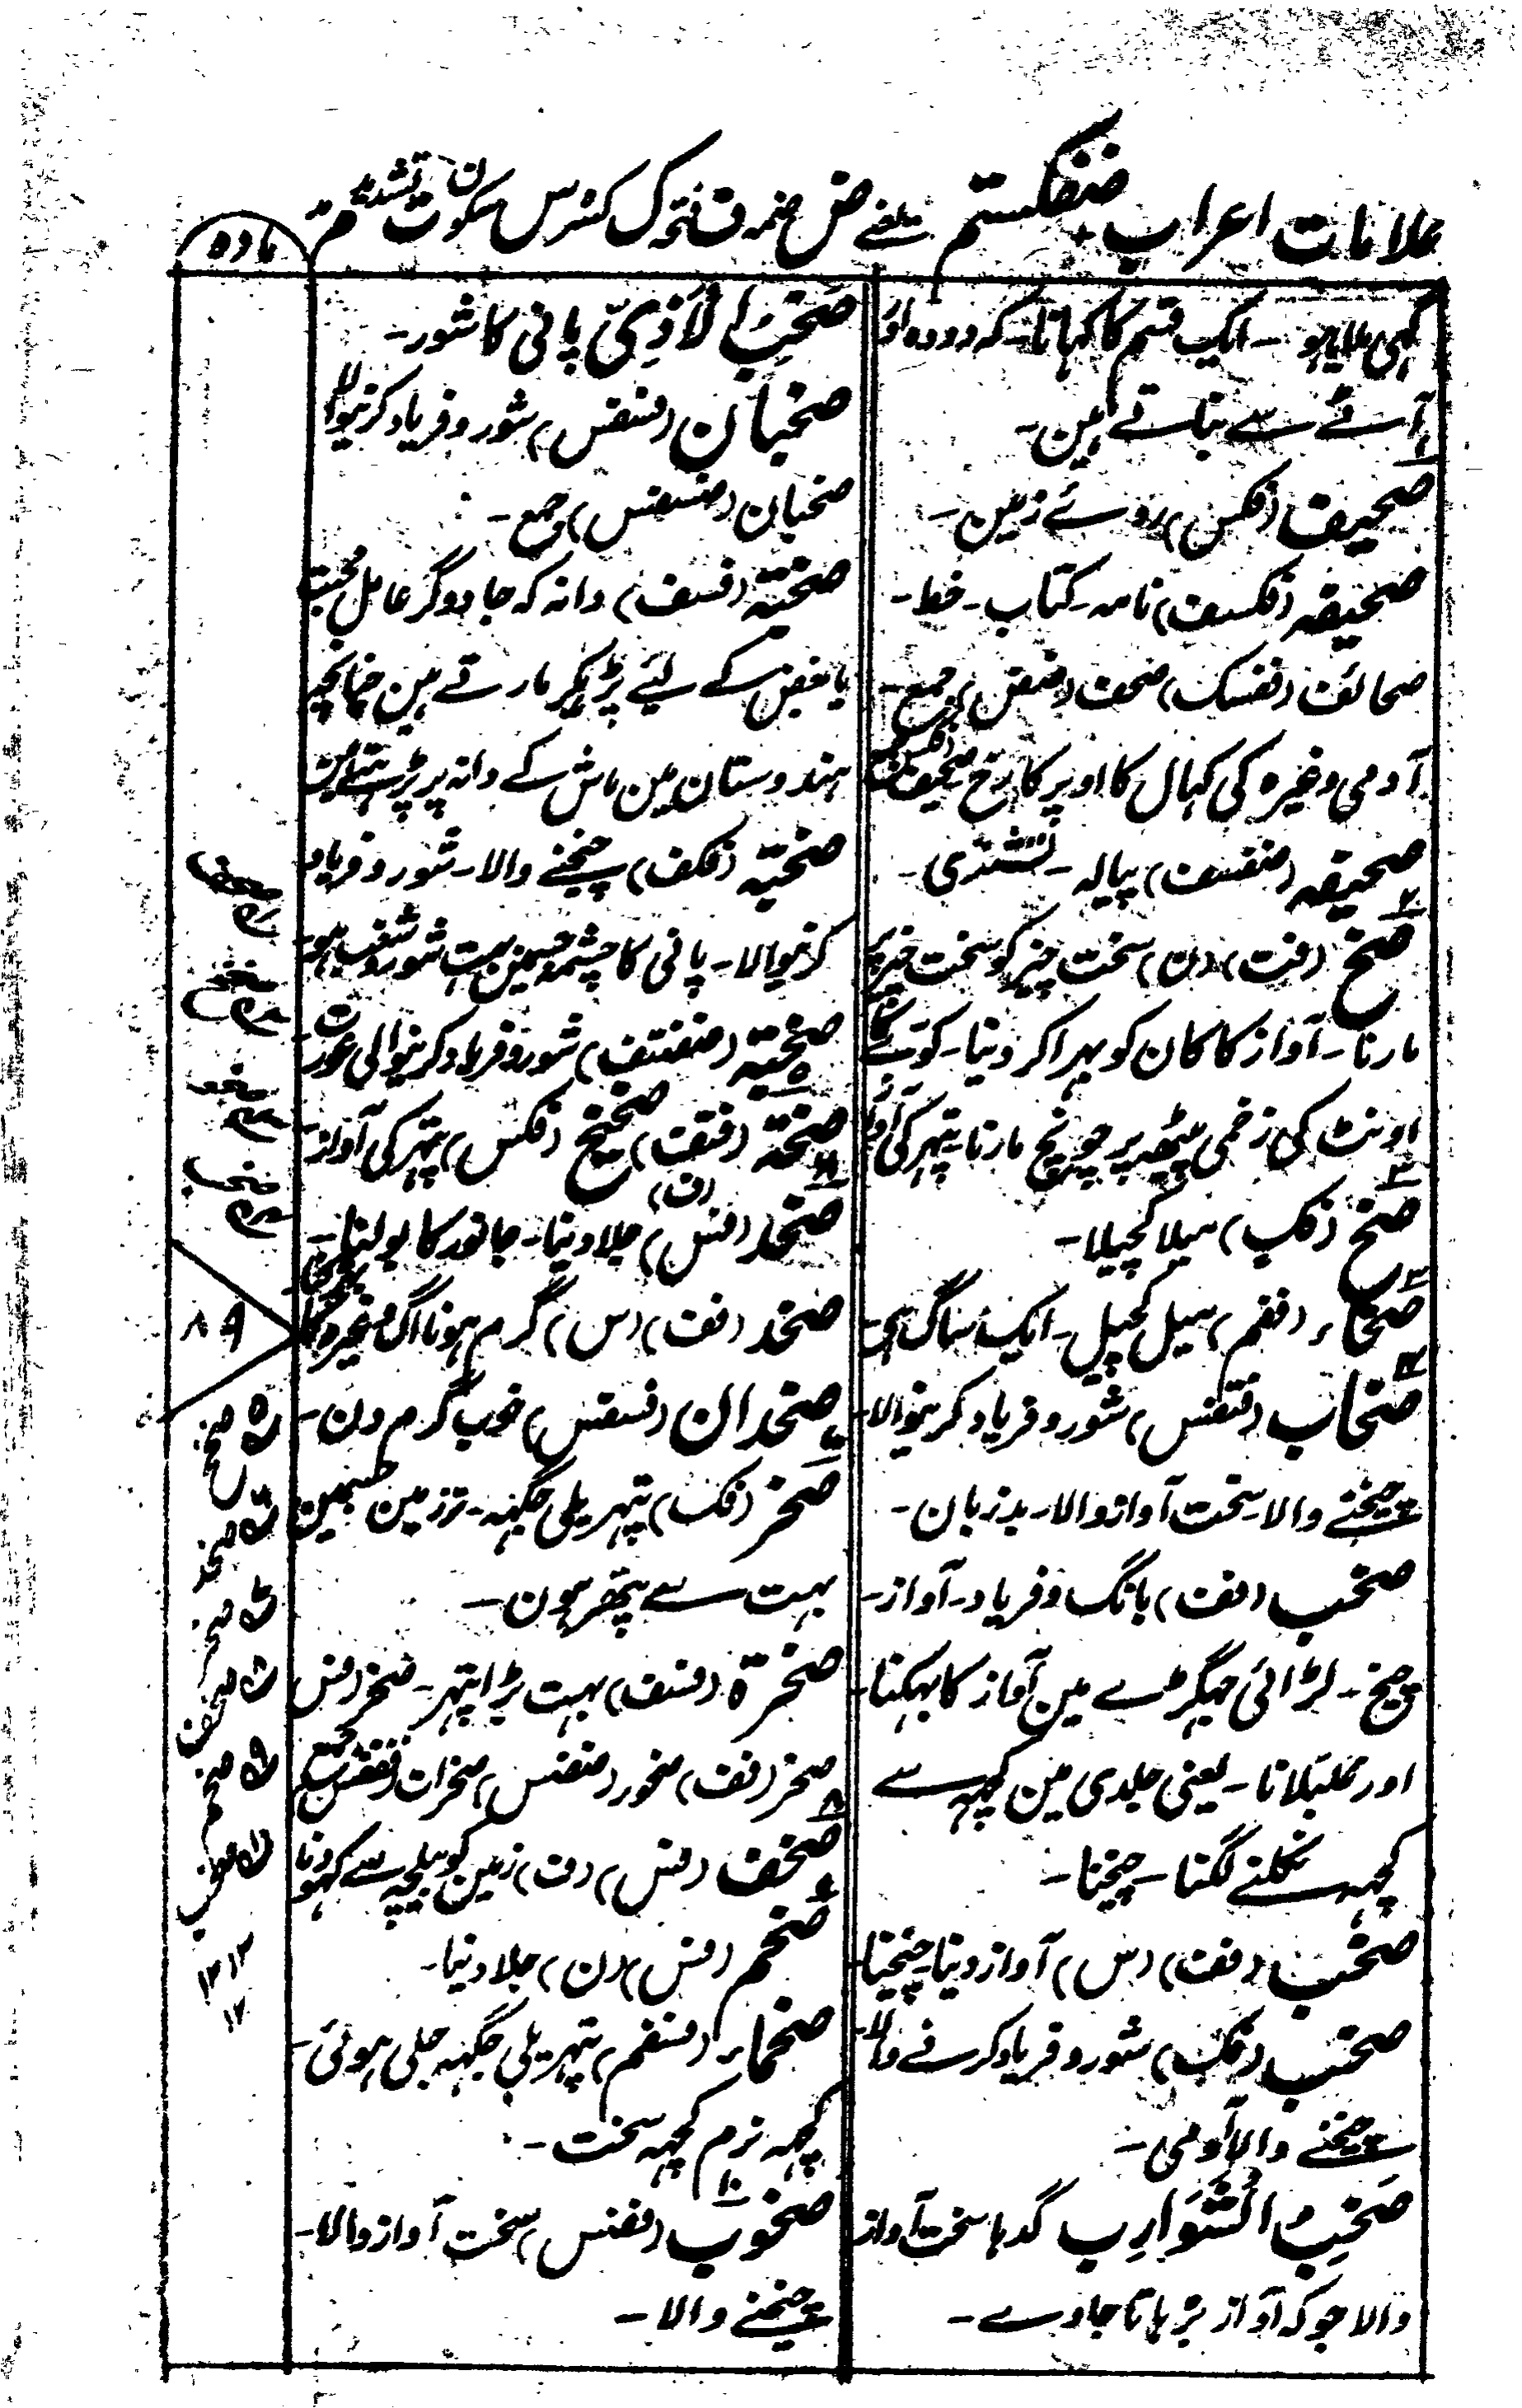 علامات اعراب ضفکستم یعنے ض ضمہ ف فتحہ ک کسرہ س سکون ت تشدید م مد
مادہ
گھی ملایا ہو - ایک قسم کا کہانا - کہ دودہ اور
آٹے سے بناتے ہین -
صحیف (فکس) روئے زمین -
صحیفہ (فکسف) نامہ - کتاب - خط -
صحائف (ففسک) صحف (ضض) جمع -
آدمی وغیرہ کی کہال کا اوپر کا رخ صحیف (فکس)
صحیفہ (ضفسف) پیالہ - تشتری -
صخ (فت) (ن) سخت چیز کو سخت چیز پر
مارنا - آواز کا کان کو بہرا کر دینا - کوے کا
اونٹ کی زخمی پیٹھ پر چونچ مارنا پتہر کی آواز
صخ (فک) میلا کچیلا -
صخاء (ففم) میل کچیل - ایک ساگ ہی -
صخاب (فتفس) شور و فریاد کرنیوالا -
چیخنے والا - سخت آواز والا - بدزبان -
صخب (فف) بانگ و فریاد - آواز -
چیخ - لڑائی جھگڑے مین آواز کا بہکنا -
اور تلبلانا - یعنی جلدی مین کچہہ سے
کچہہ نکلنے لگنا - چیخنا -
صخب (فف) (س) آواز دینا چیخنا
صخب (فک) شور و فریاد کرنے والا -
چیخنے والا آدمی -
صَخِبُ الشَّوَارِبِ گدہا سخت آواز
والا جو کہ آواز بڑہاتا جاوے -
صَخِبُ الْاٰذِیِّ پانی کا شور -
صخبان (فسفس) شور و فریاد کرنیوالا
صخبان (ضسفس) جمع -
صخبة (فسف) دانہ کہ جادوگر عامل محبت
یا بغض کے لیئے پڑہکر مارتے ہین چنانچہ
ہندوستان مین ماش کے دانہ پر پڑہتے ہین
صخبة (فکف) چیخنے والا - شور و فریاد
کرنیوالا - پانی کا چشمہ جسمین بہت شور و شغب ہو -
صخبة (ضضتف) شور و فریاد کرنیوالی عورت
صخة (فتف) صخیخ (فکس) پتہر کی آواز -
صخد (فس) (ف) جلا دینا - جانور کا بولنا -
صخد (فف) (س) گرم ہونا آگ وغیرہ کا
صخدان (فسفس) خوب گرم دن -
صخر (فک) پتہریلی جگہہ - تر زمین جسمین
بہت سے پتھر ہون -
صخرة (فسف) بہت بڑا پتہر - صخر (فس
صخر (فف) صخور (ضضس) صخرات (ففس) جمع
صخف (فس) (ف) زمین کو بیلچہ سے کہودنا
صخم (فس) (ن) جلا دینا -
صخماء (فسفم) پتہریلی جگہہ جلی ہوئی -
کچہہ نرم کچہہ سخت -
صخوب (فضس) سخت آواز والا -
چیخنے والا -
۸۹
۵ صخخ
۶ صخد
۷ صخر
۸ صخف
۹ صخم
۱۰ صخب